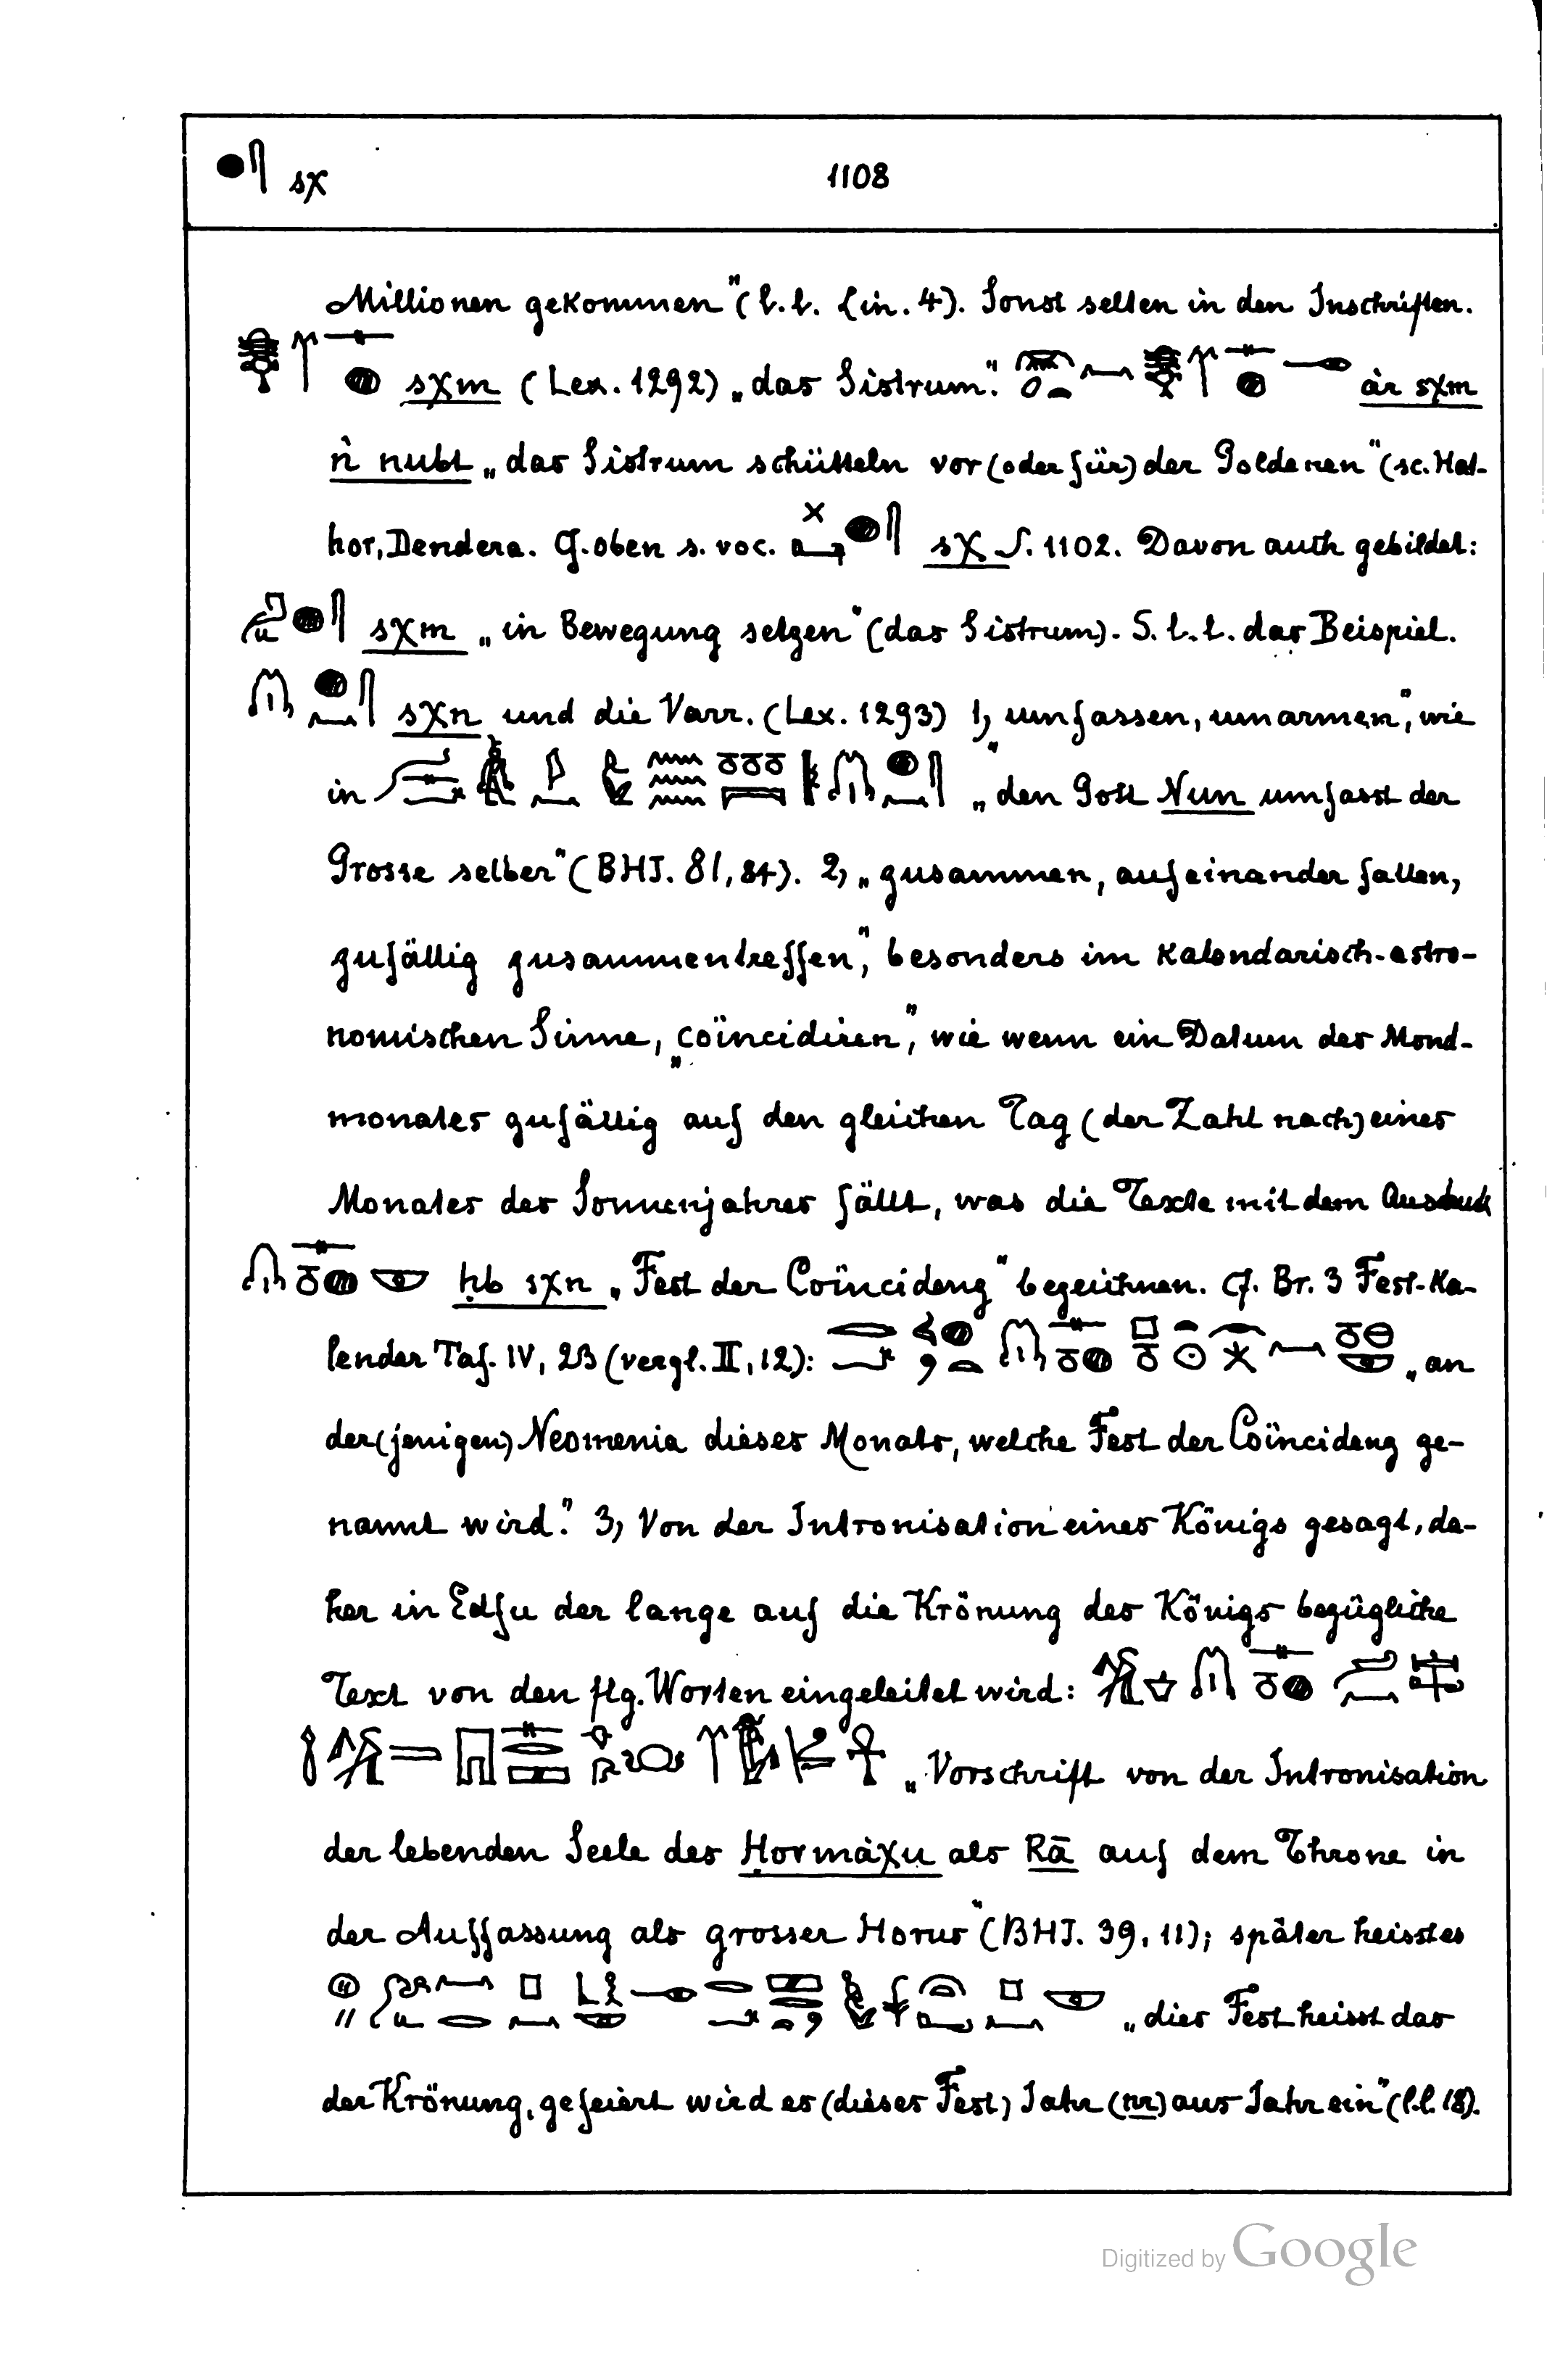 sχ 1108
Millionen gekommen" (l. l. lin. 4). Sonst selten in den Inschriften.
sχm (Lex. 1292) „das Sistrum." àr sχm
ǹ nubt „das Sistrum schütteln vor (oder für) der Goldenen" (sc. Hat-
hor, Dendera. Cf. oben s. voc. sχ S. 1102. Davon auch gebildet:
sχm „in Bewegung setzen" (das Sistrum). S. l. l. das Beispiel.
sχn und die Varr. (Lex. 1293) 1, „umfassen, umarmen", wie
in „den Gott Nun umfasst der
Grosse selber" (BHI. 81, 84). 2, „zusammen, aufeinander fallen,
zufällig zusammentreffen", besonders im kalendarisch-astro-
nomischen Sinne, „coïncidiren", wie wenn ein Datum des Mond-
monates zufällig auf den gleichen Tag (der Zahl nach) eines
Monates des Sonnenjahres fällt, was die Texte mit dem Ausdruck
ḥb sχn „Fest der Coïncidenz" bezeichnen. Cf. Br. 3 Fest-Ka-
lender Taf. IV, 23 (vergl. II, 12): „an
der (jenigen) Neomenia dieses Monats, welche Fest der Coïncidenz ge-
nannt wird." 3, Von der Intronisation eines Königs gesagt, da-
her in Edfu der lange auf die Krönung des Königs bezügliche
Text von den flg. Worten eingeleitet wird:
„Vorschrift von der Intronisation
der lebenden Seele des Ḥormàχu als Rā auf dem Throne in
der Auffassung als grosser Horus" (BHI. 39, 11); später heisst es
„dies Fest heisst das
der Krönung, gefeiert wird es (dieses Fest) Jahr (nr) aus Jahr ein" (l. l. 18).
Digitized by Google